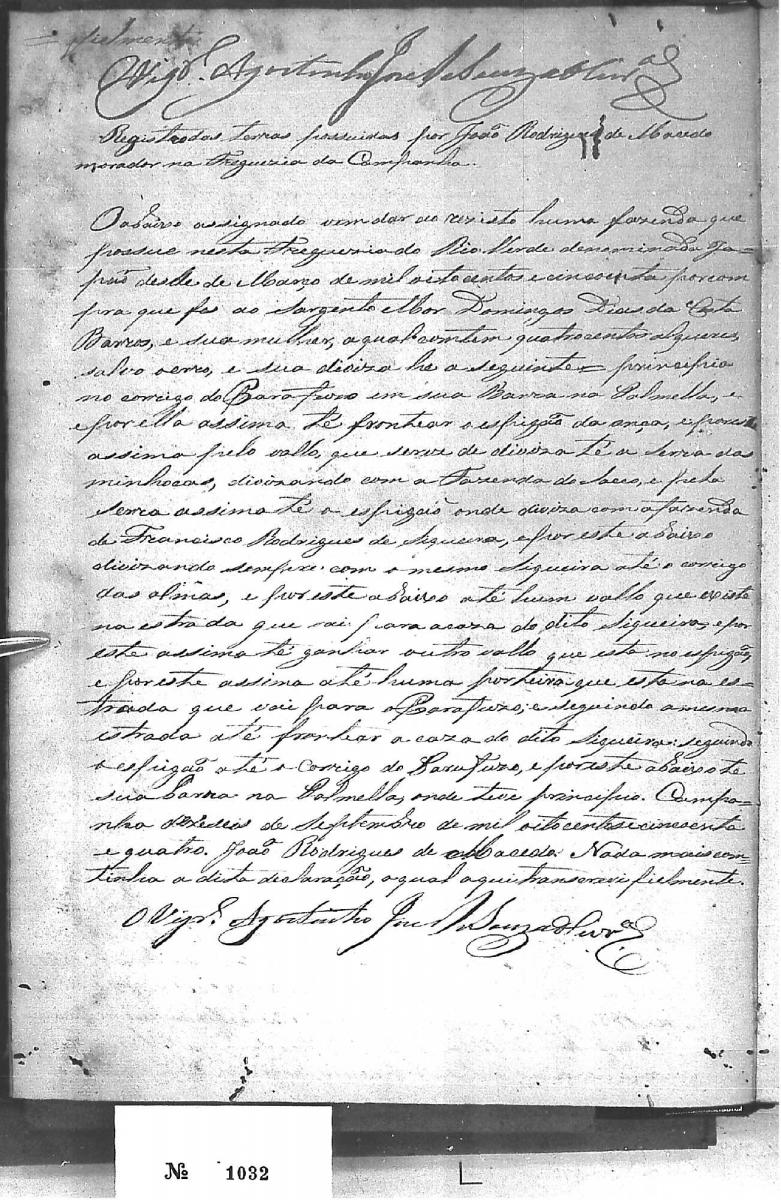 = fielmente
Vigr.º Agostinho José de Souza Olivr.ª
Registro das terras possuidas por João Rodrigues de Macedo
morador na Freguezia da Campanha.
O abaixo assignado vem dar ao rezisto huma fazenda que
possue nesta Freguezia do Rio Verde denominada Ja-
desde de Março de mil oitocentos e cincoenta por com
pra que fes ao Sargento Mor Domingos Dias da Costa
Barros, e sua mulher, a qual contem quatrocentos alqueres,
salvo erro, e sua diviza he a seguinte = principia
no corrigo do Parafuzo em sua Barra na Palmella, e
e por ella assima té frontear o espigão da ança, e por
assima pelo vallo, que serve de diviza té a Serra das
minhocas, divizando com a Fazenda do Saco, e pela
Serra assima té o espigão onde diviza com a fazenda
de Francisco Rodrigues de Siqueira, e por este abaixo
divizando sempre com o mesmo Siqueira até o corrigo
das almas, e por este abaixo até hum vallo que existe
na estrada que vai para a caza do dito Siqueira, e por
este assima té ganhar outro vallo que esta no espigão,
e por este assima até huma porteira que esta na es-
trada que vai para o Parafuzo; e seguindo a mesma
estrada até frontear a caza do dito Siqueira: seguindo
o espigão até o Corrigo do Parafuzo, e por este abaixo té
sua barra na Palmella, onde teve principio. Campa-
nha de Septembro de mil oitocentos e cincoenta
e quatro. João Rodrigues de Macedo. Nada mais con-
tinha a dita declaração, a qual aqui transcrevi fielmente.
O Vigr.º Agostinho José de Souza Olivr.ª
№ 1032